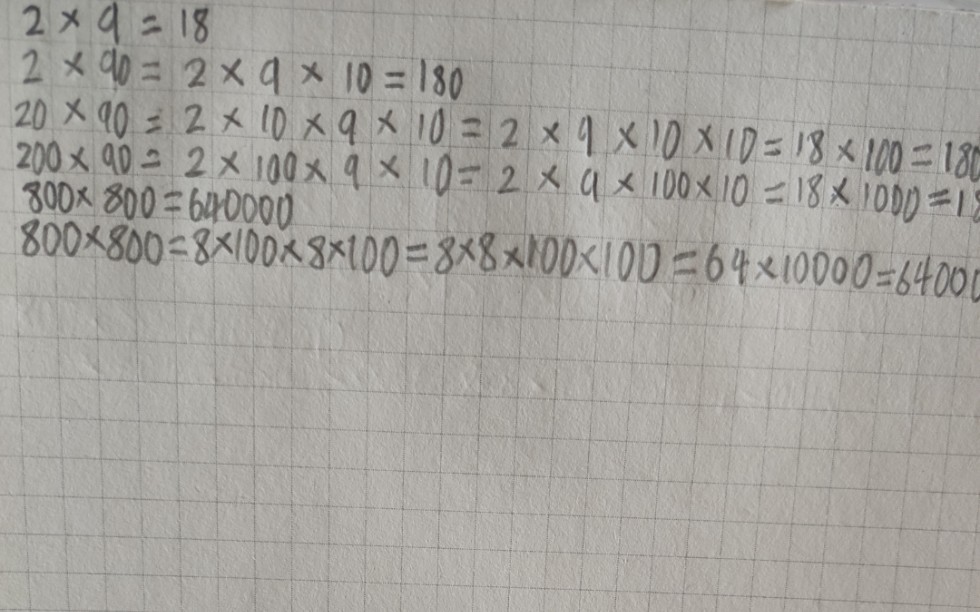 2 × 9 = 18
2 × 90 = 2 × 9 × 10 = 180
20 × 90 = 2 × 10 × 9 × 10 = 2 × 9 × 10 × 10 = 18 × 100 = 180
200 × 90 = 2 × 100 × 9 × 10 = 2 × 9 × 100 × 10 = 18 × 1000 = 18
800 × 800 = 640000
800 × 800 = 8 × 100 × 8 × 100 = 8 × 8 × 100 × 100 = 64 × 10000 = 64000